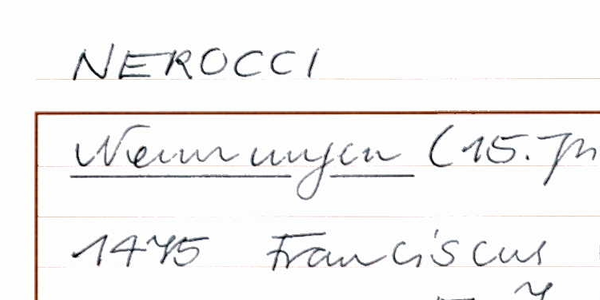 NEROCCI
Nennungen (15. Jh
1475 Franciscus